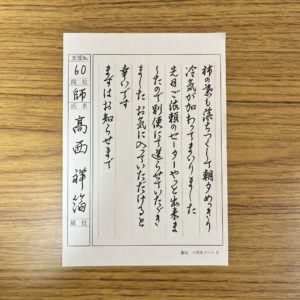 柿の葉も落ちつくして朝夕めっきり
冷気が加わってまいりました
先日ご依頼のセーターやっと出来ま
したので別便にて送らせていただき
ました お気に入っていただけると
幸いです
まずはお知らせまで
支部No.
60
段位
師
氏名
高西祥箔